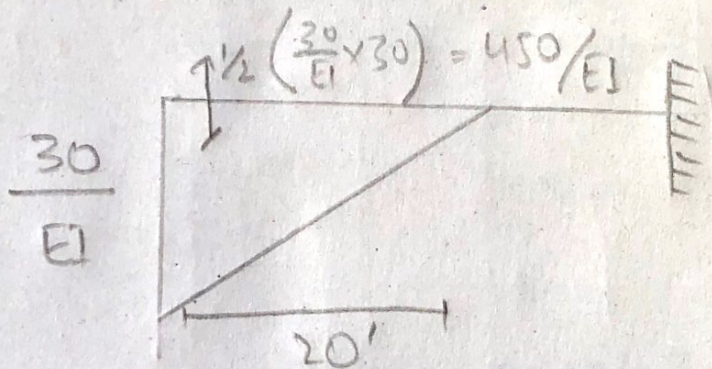 1/2 (30/EI x 30) = 450/EI
30/EI
20'